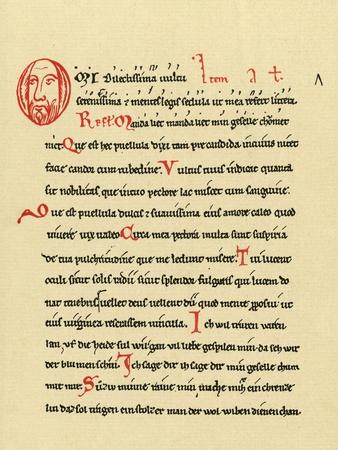 O mi dilectissima uultu Item A t. ʌ
serenissima & mentes legis sedula ut mea refert littera
Refl. Manda liet manda liet min geselle chomet
niet Que est hec puellula dixi tam precandida in cuius nitet
facie candor cum rubedine. Vultus tuus indicat quanta
sit nobilitas que in tuo pectore lac miscet cum sanguine.
Que est puellula dulcis & suauissima eius amore caleo quod
uiuere uix ualeo Circa mea pectora multa sunt suspiria
de tua pulchritudine que me ledunt misere. Tui lucent
oculi sicut solis radii sicut splendor fulguris qui lucem do
nat tenebris uellet deus uellent dii quod mente proposui ut
eius uirginea reserassem uincula. Ich wil truren varen
lan. vf die heide sul wir gan. vil liebe gespilen min. da seh wir
der blumen schin. Ich sage dir ih sage dir min geselle chum
mit mir. Suziv minne raine min mache mir ein chrenze
lin daz sol tragen ein stolzer man der wol wiben dienen chan.